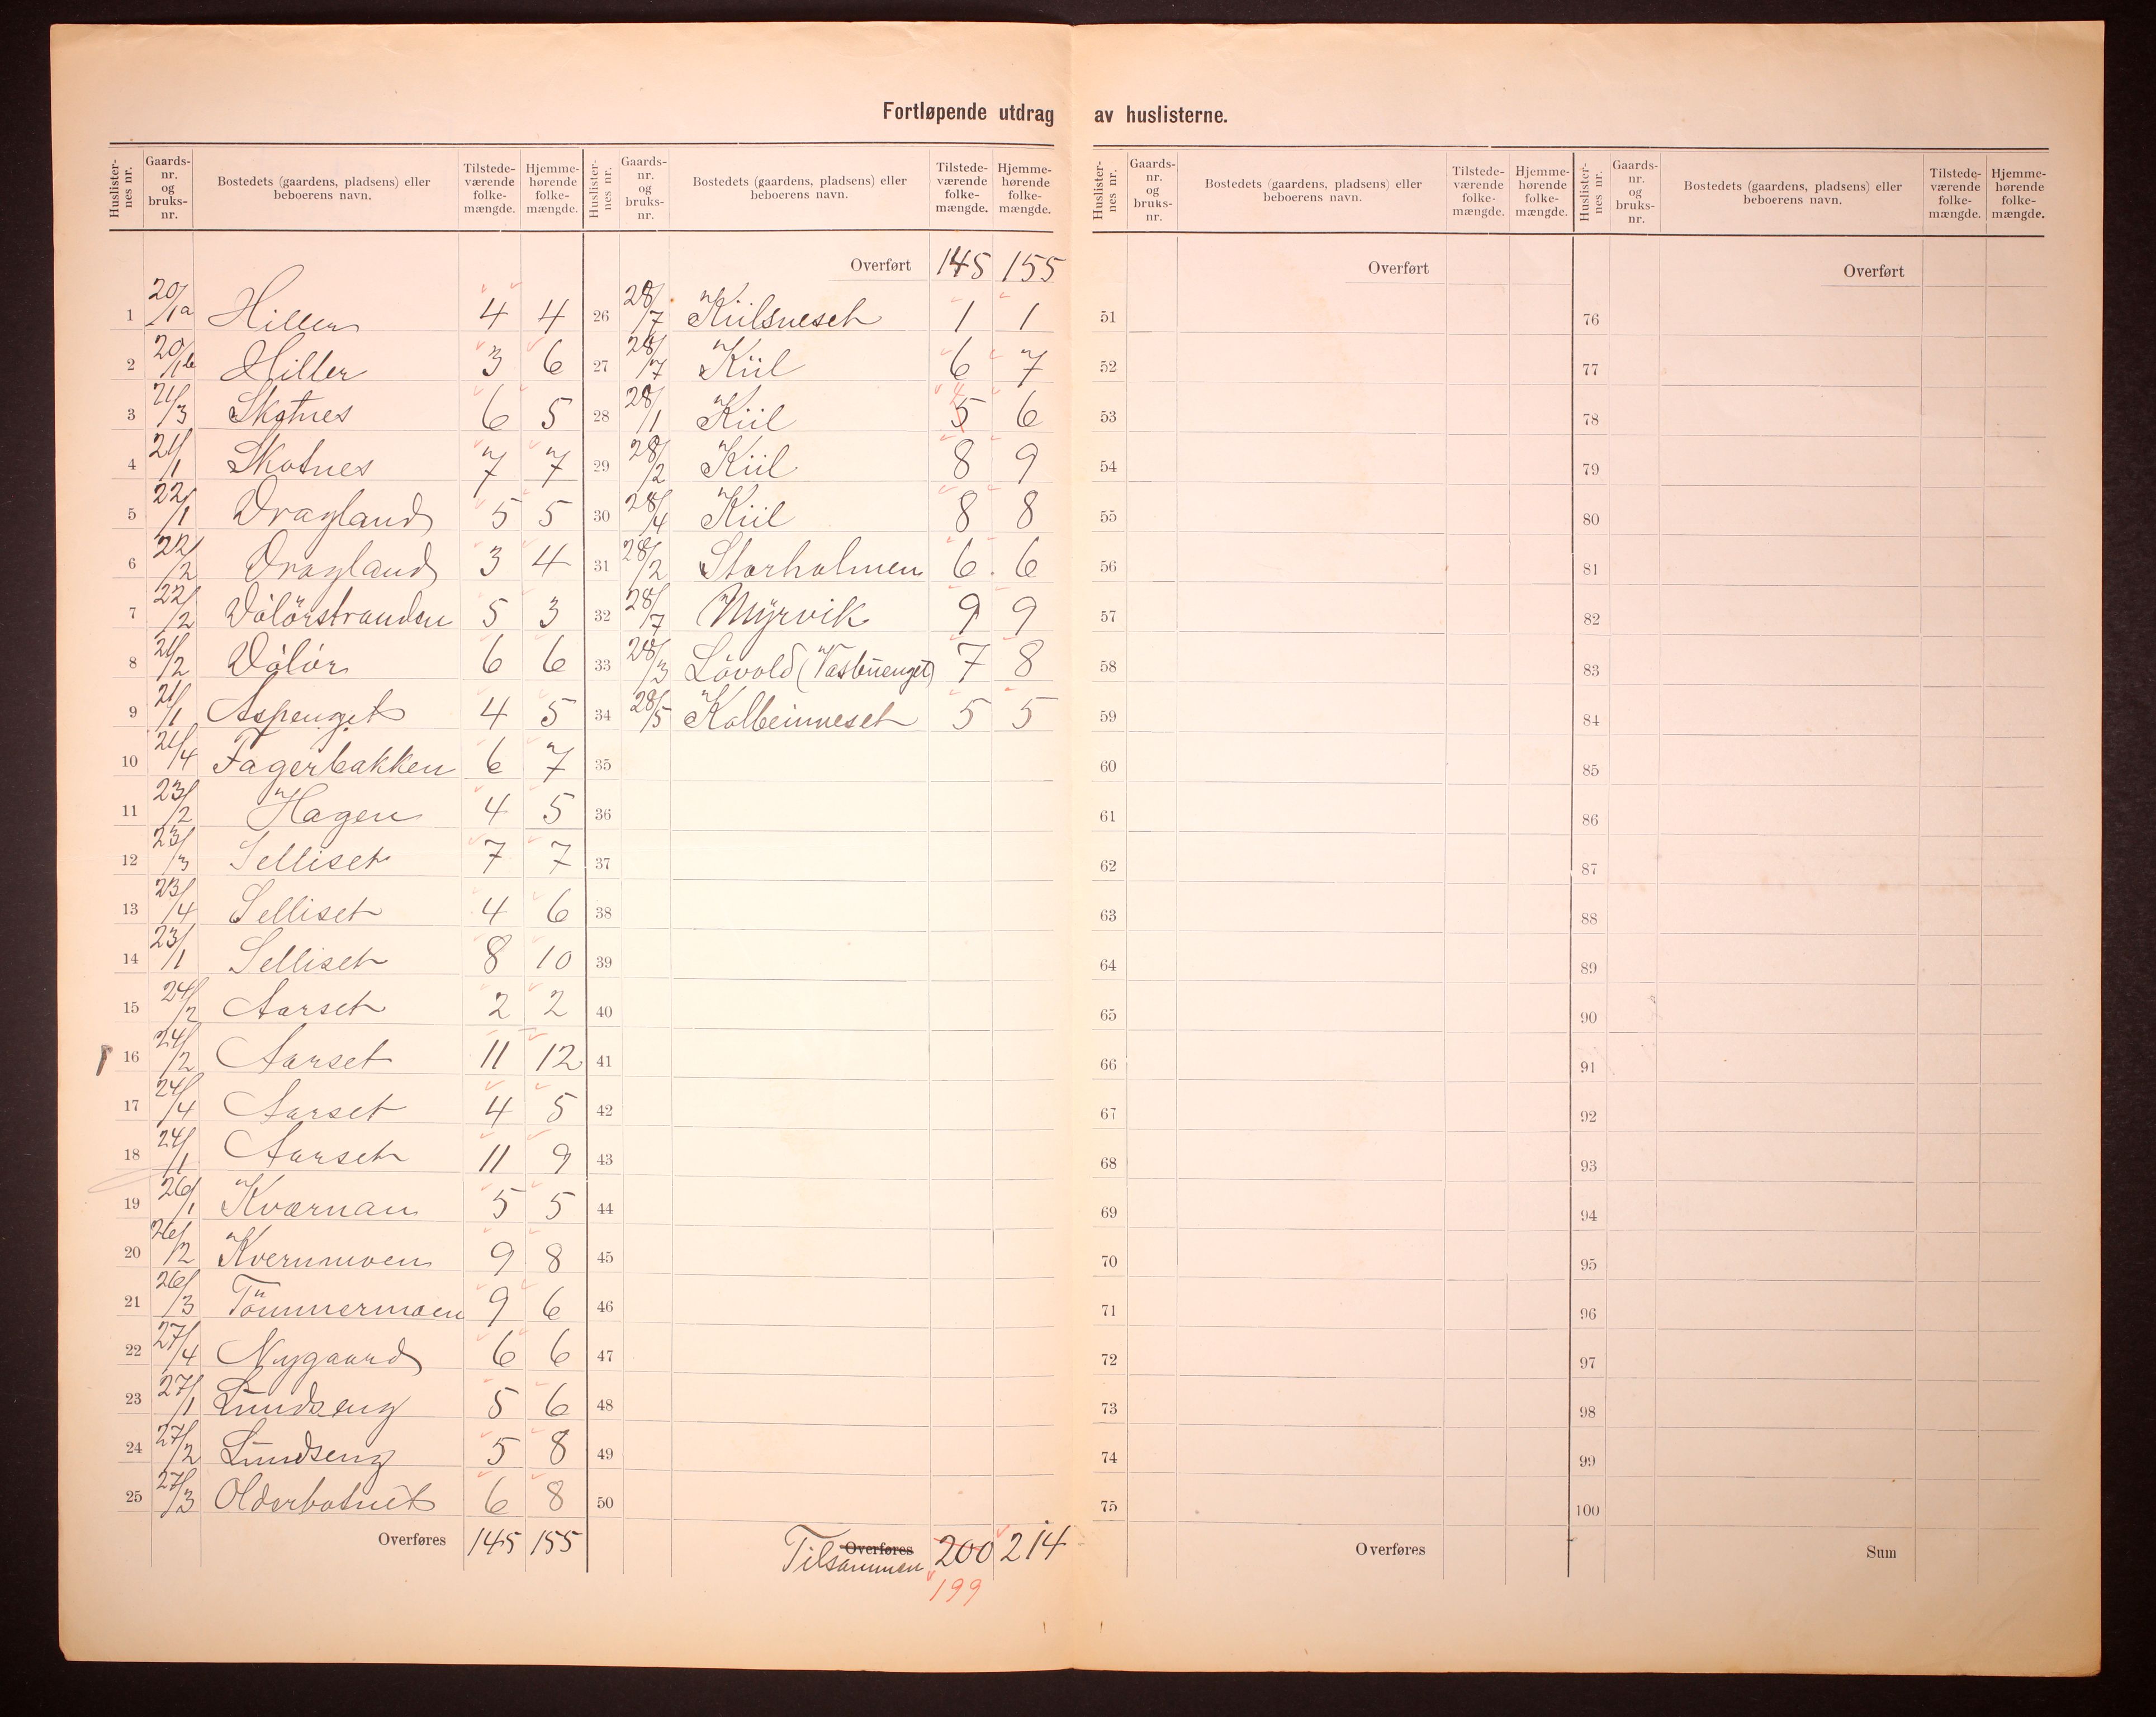 Fortløpende utdrag av huslisterne.
Huslister-nes nr. Gaards-nr. og bruks-nr. Bostedets (gaardens, pladsens) eller beboerens navn. Tilstede-værende folke-mængde. Hjemme-hørende folke-mængde.
1 20/1a Hiller 4 4
2 20/1b Hiller 3 6
3 21/3 Skotnes 6 5
4 21/1 Skotnes 7 7
5 22/1 Dragland 5 5
6 22/2 Dragland 3 4
7 22/2 Valörstranden 5 3
8 21/2 Valör 6 6
9 21/1 Aspenget 4 5
10 21/4 Fagerbakken 6 7
11 23/2 Hagen 4 5
12 23/3 Selliset 7 7
13 23/4 Selliset 4 6
14 23/1 Selliset 8 10
15 24/2 Aarset 2 2
16 24/2 Aarset 11 12
17 24/4 Aarset 4 5
18 24/1 Aarset 11 9
19 26/1 Kværnan 5 5
20 26/2 Kvernmoen 9 8
21 26/3 Tömmermoen 9 6
22 27/4 Nygaard 6 6
23 27/1 Lundseng 5 6
24 27/2 Lundseng 5 8
25 27/3 Olderbotnet 6 8
Overføres 145 155
Huslister-nes nr. Gaards-nr. og bruks-nr. Bostedets (gaardens, pladsens) eller beboerens navn. Tilstede-værende folke-mængde. Hjemme-hørende folke-mængde.
Overført 145 155
26 28/7 Kiilsneset 1 1
27 28/7 Kiil 6 7
28 28/1 Kiil 5 4 6
29 28/2 Kiil 8 9
30 28/4 Kiil 8 8
31 28/2 Storholmen 6 6
32 28/7 Myrvik 9 9
33 28/3 Lövold (Vasbuenget) 7 8
34 28/5 Kolbeinneset 5 5
35
36
37
38
39
40
41
42
43
44
45
46
47
48
49
50
Overføres
Tilsammen 200 214
199
Huslister-nes nr. Gaards-nr. og bruks-nr. Bostedets (gaardens, pladsens) eller beboerens navn. Tilstede-værende folke-mængde. Hjemme-hørende folke-mængde.
Overført
51
52
53
54
55
56
57
58
59
60
61
62
63
64
65
66
67
68
69
70
71
72
73
74
75
Overføres
Huslister-nes nr. Gaards-nr. og bruks-nr. Bostedets (gaardens, pladsens) eller beboerens navn. Tilstede-værende folke-mængde. Hjemme-hørende folke-mængde.
Overført
76
77
78
79
80
81
82
83
84
85
86
87
88
89
90
91
92
93
94
95
96
97
98
99
100
Sum